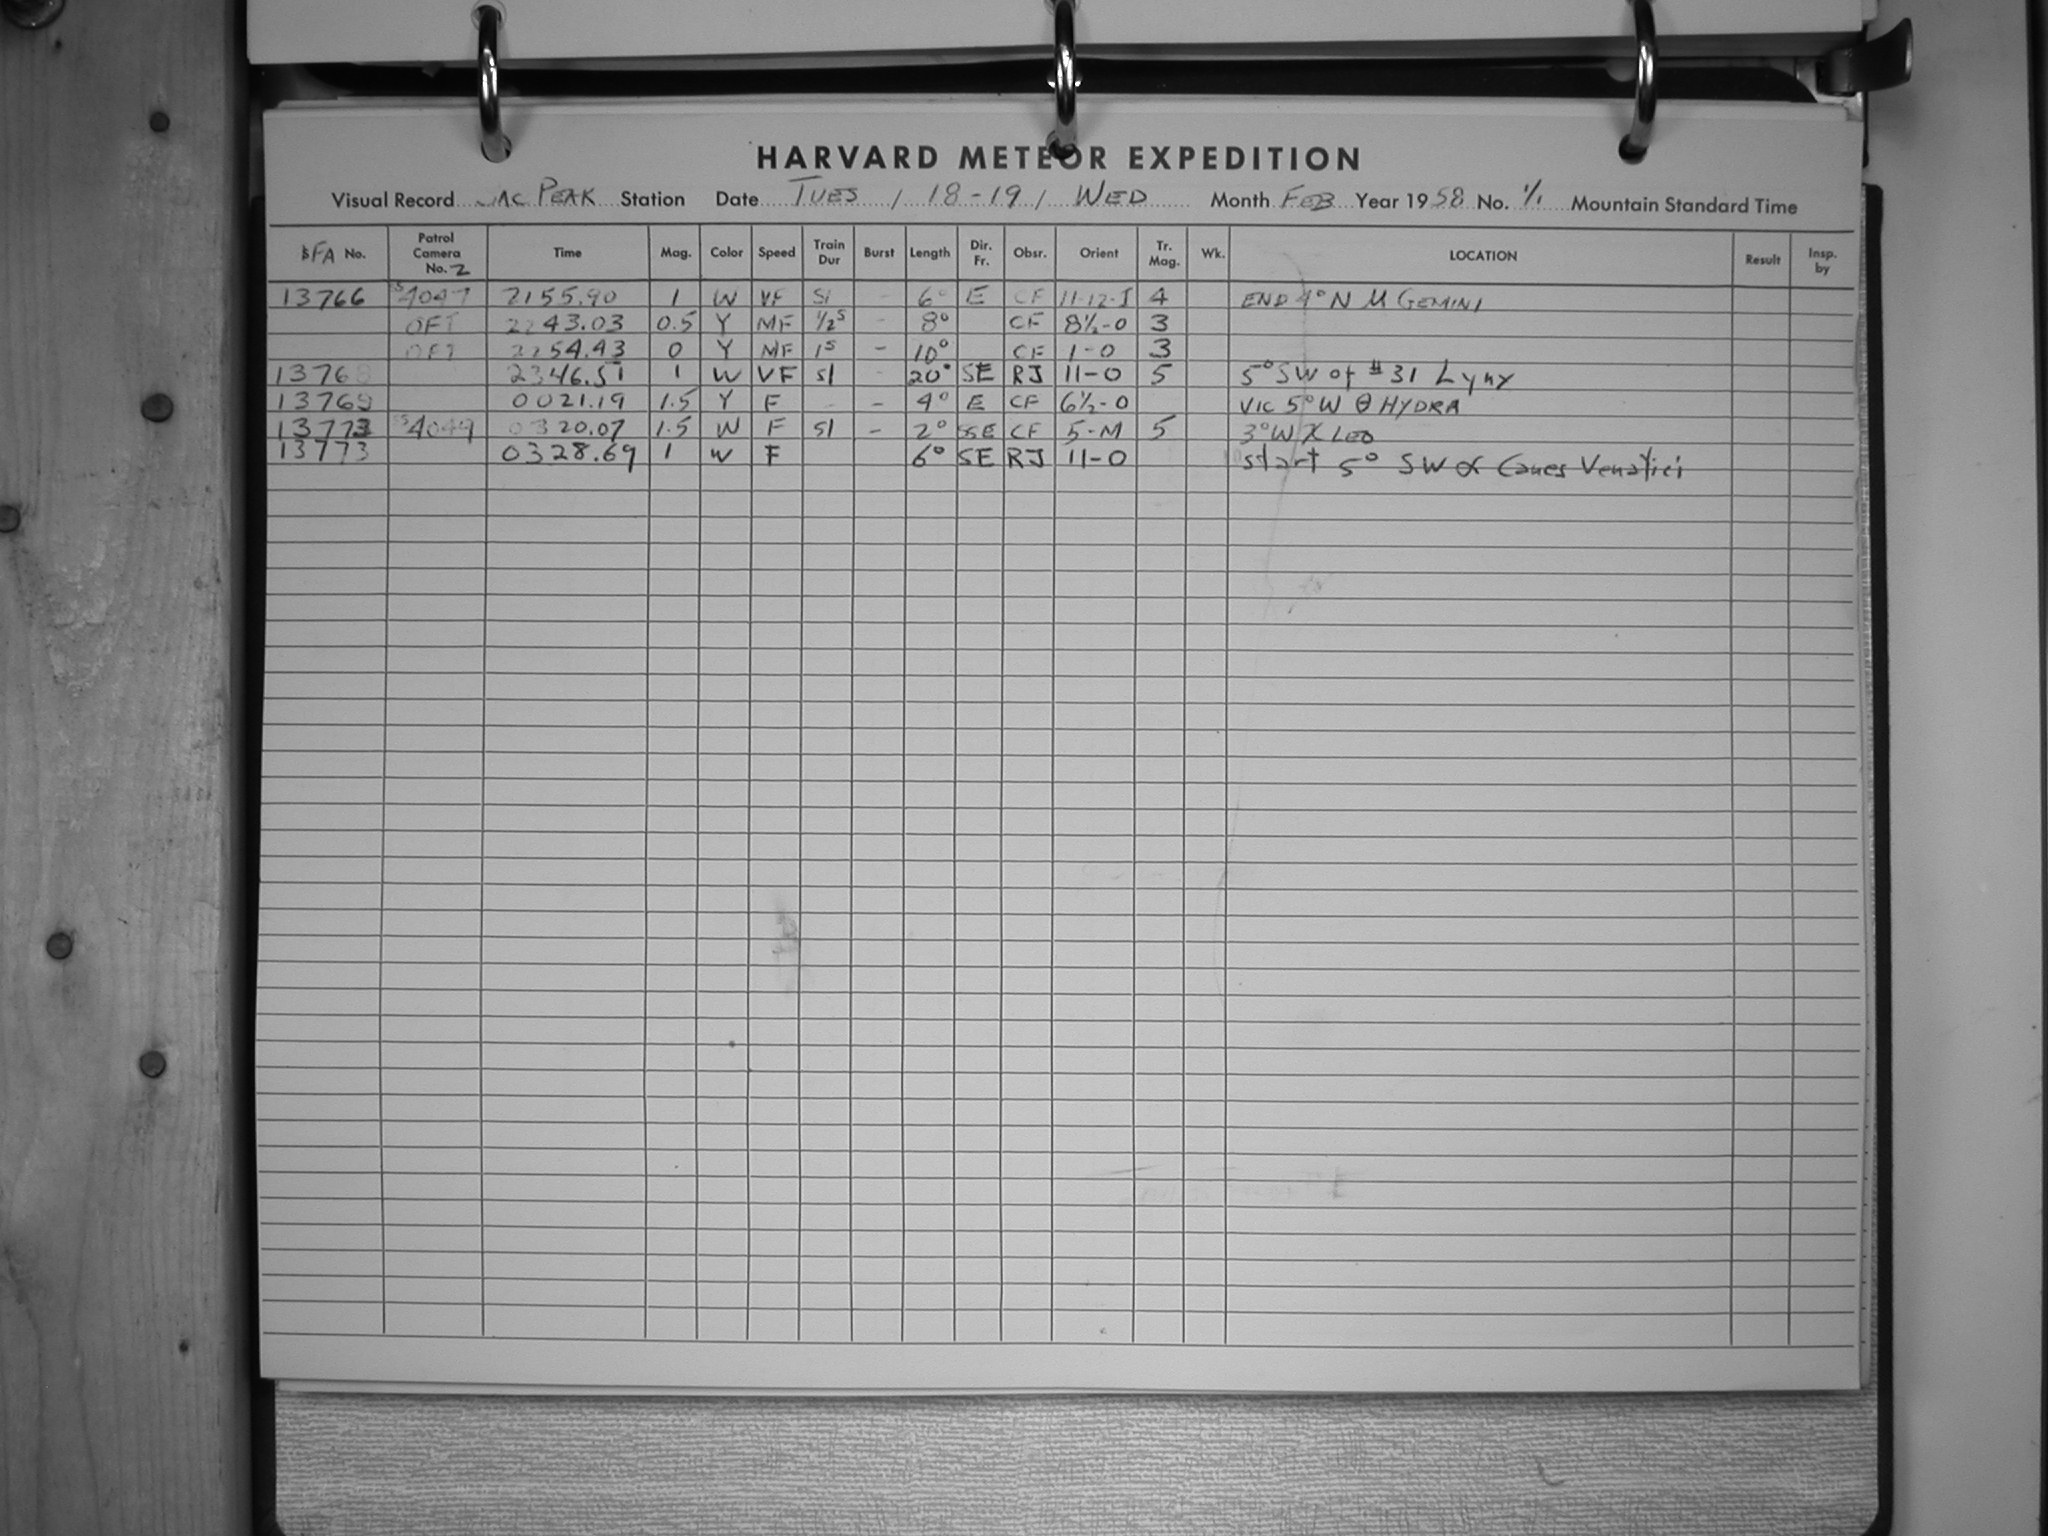 HARVARD METEOR EXPEDITION
Visual Record SAC PEAK Station Date TUES / 18-19 / WED Month FEB Year 1958 No. 1/1 Mountain Standard Time
SFA No. Patrol Camera No. 2 Time Mag. Color Speed Train Dur Burst Length Dir. Fr. Obsr. Orient Tr. Mag. Wk. LOCATION Result Insp. by
13766 2155.90 1 W VF S1 - 6° E CF 11-12-I 4 END 4° N μ GEMINI
2243.03 0.5 Y MF 1/2s - 8° CF 8½-0 3
2254.43 0 Y MF 1s - 10° CF 1-0 3
13768 2346.51 1 W VF S1 20° SE RJ 11-0 5 5° SW of #31 Lynx
13769 0021.19 1.5 Y F - - 4° E CF 6½-0 VIC 5° W θ HYDRA
13773 SS4049 0320.07 1.5 W F S1 - 2° SSE CF 5-M 5 3° W χ LEO
13773 0328.69 1 W F 6° SE RJ 11-0 start 5° SW α Canes Venatici